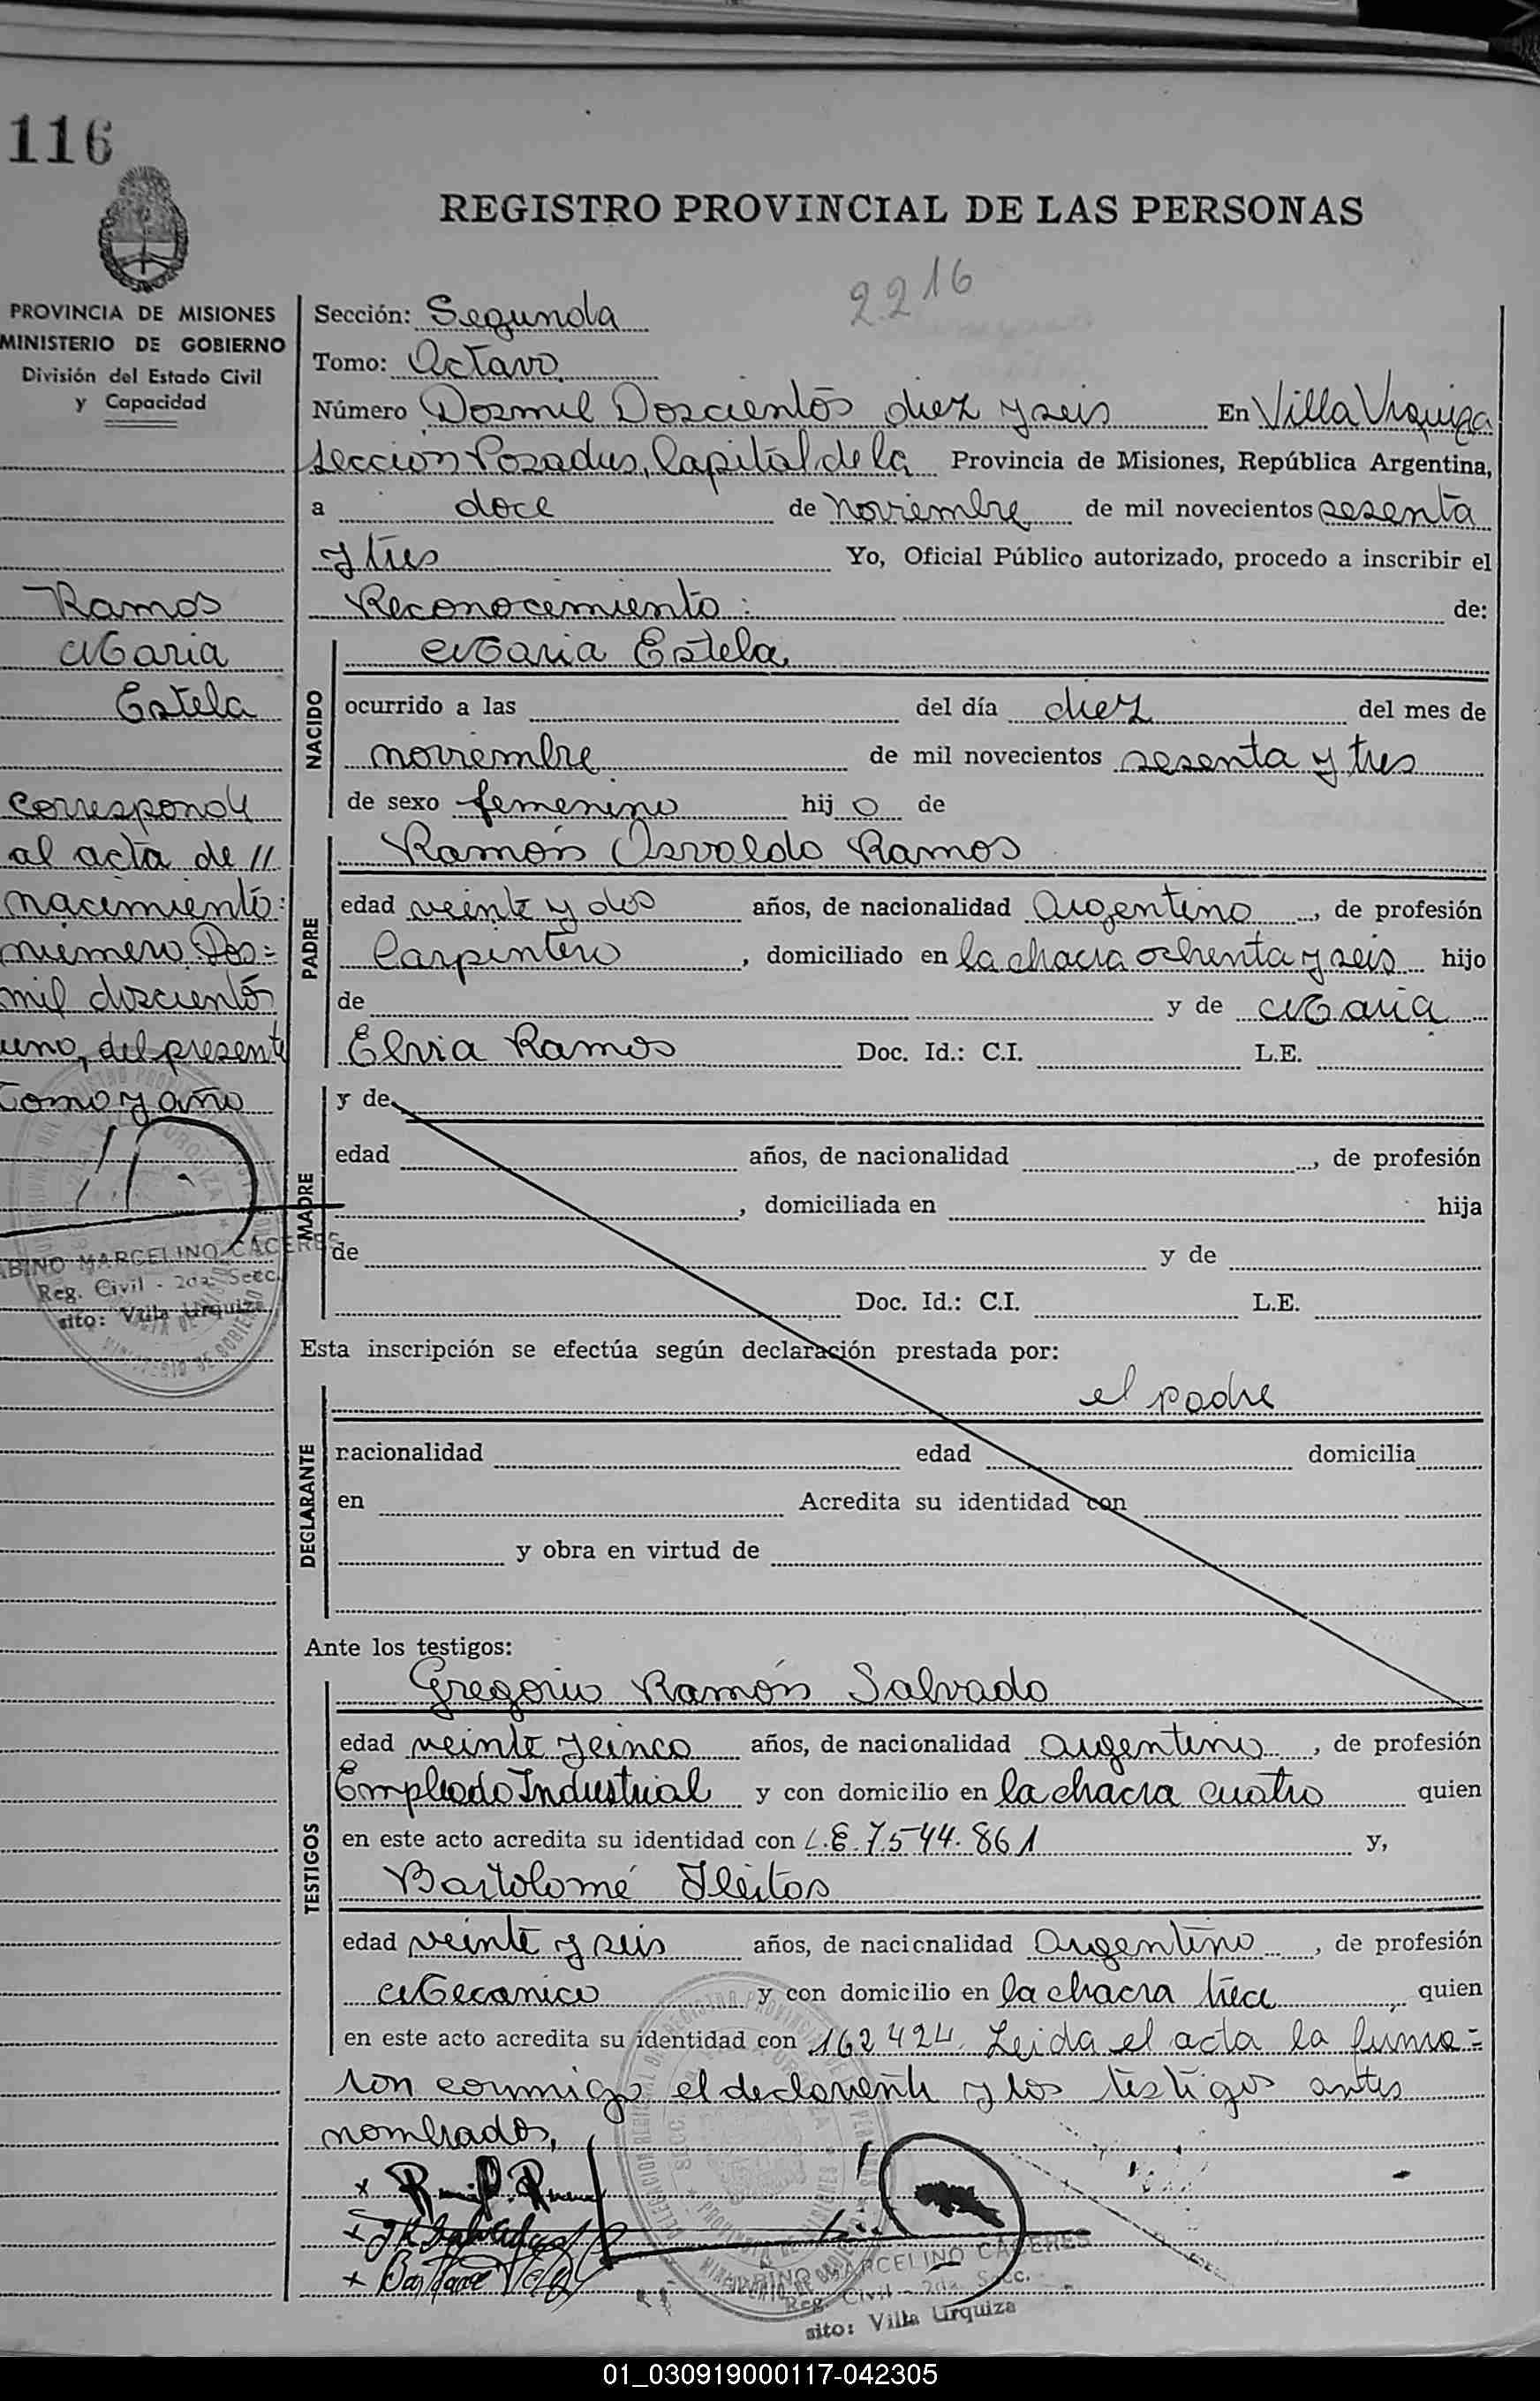 116
REGISTRO PROVINCIAL DE LAS PERSONAS
2216
PROVINCIA DE MISIONES
MINISTERIO DE GOBIERNO
División del Estado Civil
y Capacidad
Ramos
Maria
Estela
al acta de //
nacimiento:
número Dos=
mil doscientos
uno, del presente
Tomo y año
BINO MARCELINO CACERES
Reg. Civil - 2da. Secc.
sito: Villa Urquiza
Sección: Segunda
Tomo: Octavo
Número Dosmil Doscientos diez y seis En Villa Urquiza
Sección Posadas, Capital de la Provincia de Misiones, República Argentina,
a doce de noviembre de mil novecientos sesenta
y tres Yo, Oficial Público autorizado, procedo a inscribir el
Reconocimiento: de:
NACIDO
Maria Estela
ocurrido a las del día diez del mes de
noviembre de mil novecientos sesenta y tres
de sexo femenino hijo de
PADRE
Ramón Osvaldo Ramos
edad veinte y dos años, de nacionalidad Argentino, de profesión
Carpintero, domiciliado en la chacra ochenta y seis hijo
de y de Maria
Elvia Ramos Doc. Id.: C.I. L.E.
MADRE
y de
edad años, de nacionalidad , de profesión
, domiciliada en hija
de y de
Doc. Id.: C.I. L.E.
Esta inscripción se efectúa según declaración prestada por:
el padre
DECLARANTE
nacionalidad edad domicilia
en Acredita su identidad con
y obra en virtud de
Ante los testigos:
TESTIGOS
Gregorio Ramón Salvado
edad veinte y cinco años, de nacionalidad argentino, de profesión
Empleado Industrial y con domicilio en la chacra cuatro quien
en este acto acredita su identidad con L.E. 7.544.861 y,
Bartolomé
edad veinte y seis años, de nacionalidad Argentino, de profesión
Mecanico y con domicilio en la chacra trece, quien
en este acto acredita su identidad con 162424. Leida el acta la firma=
ron conmigo el declarante y los testigos antes
nombrados,
MARCELINO CACERES
Reg. Civil - 2da. Secc.
sito: Villa Urquiza
01_030919000117-042305